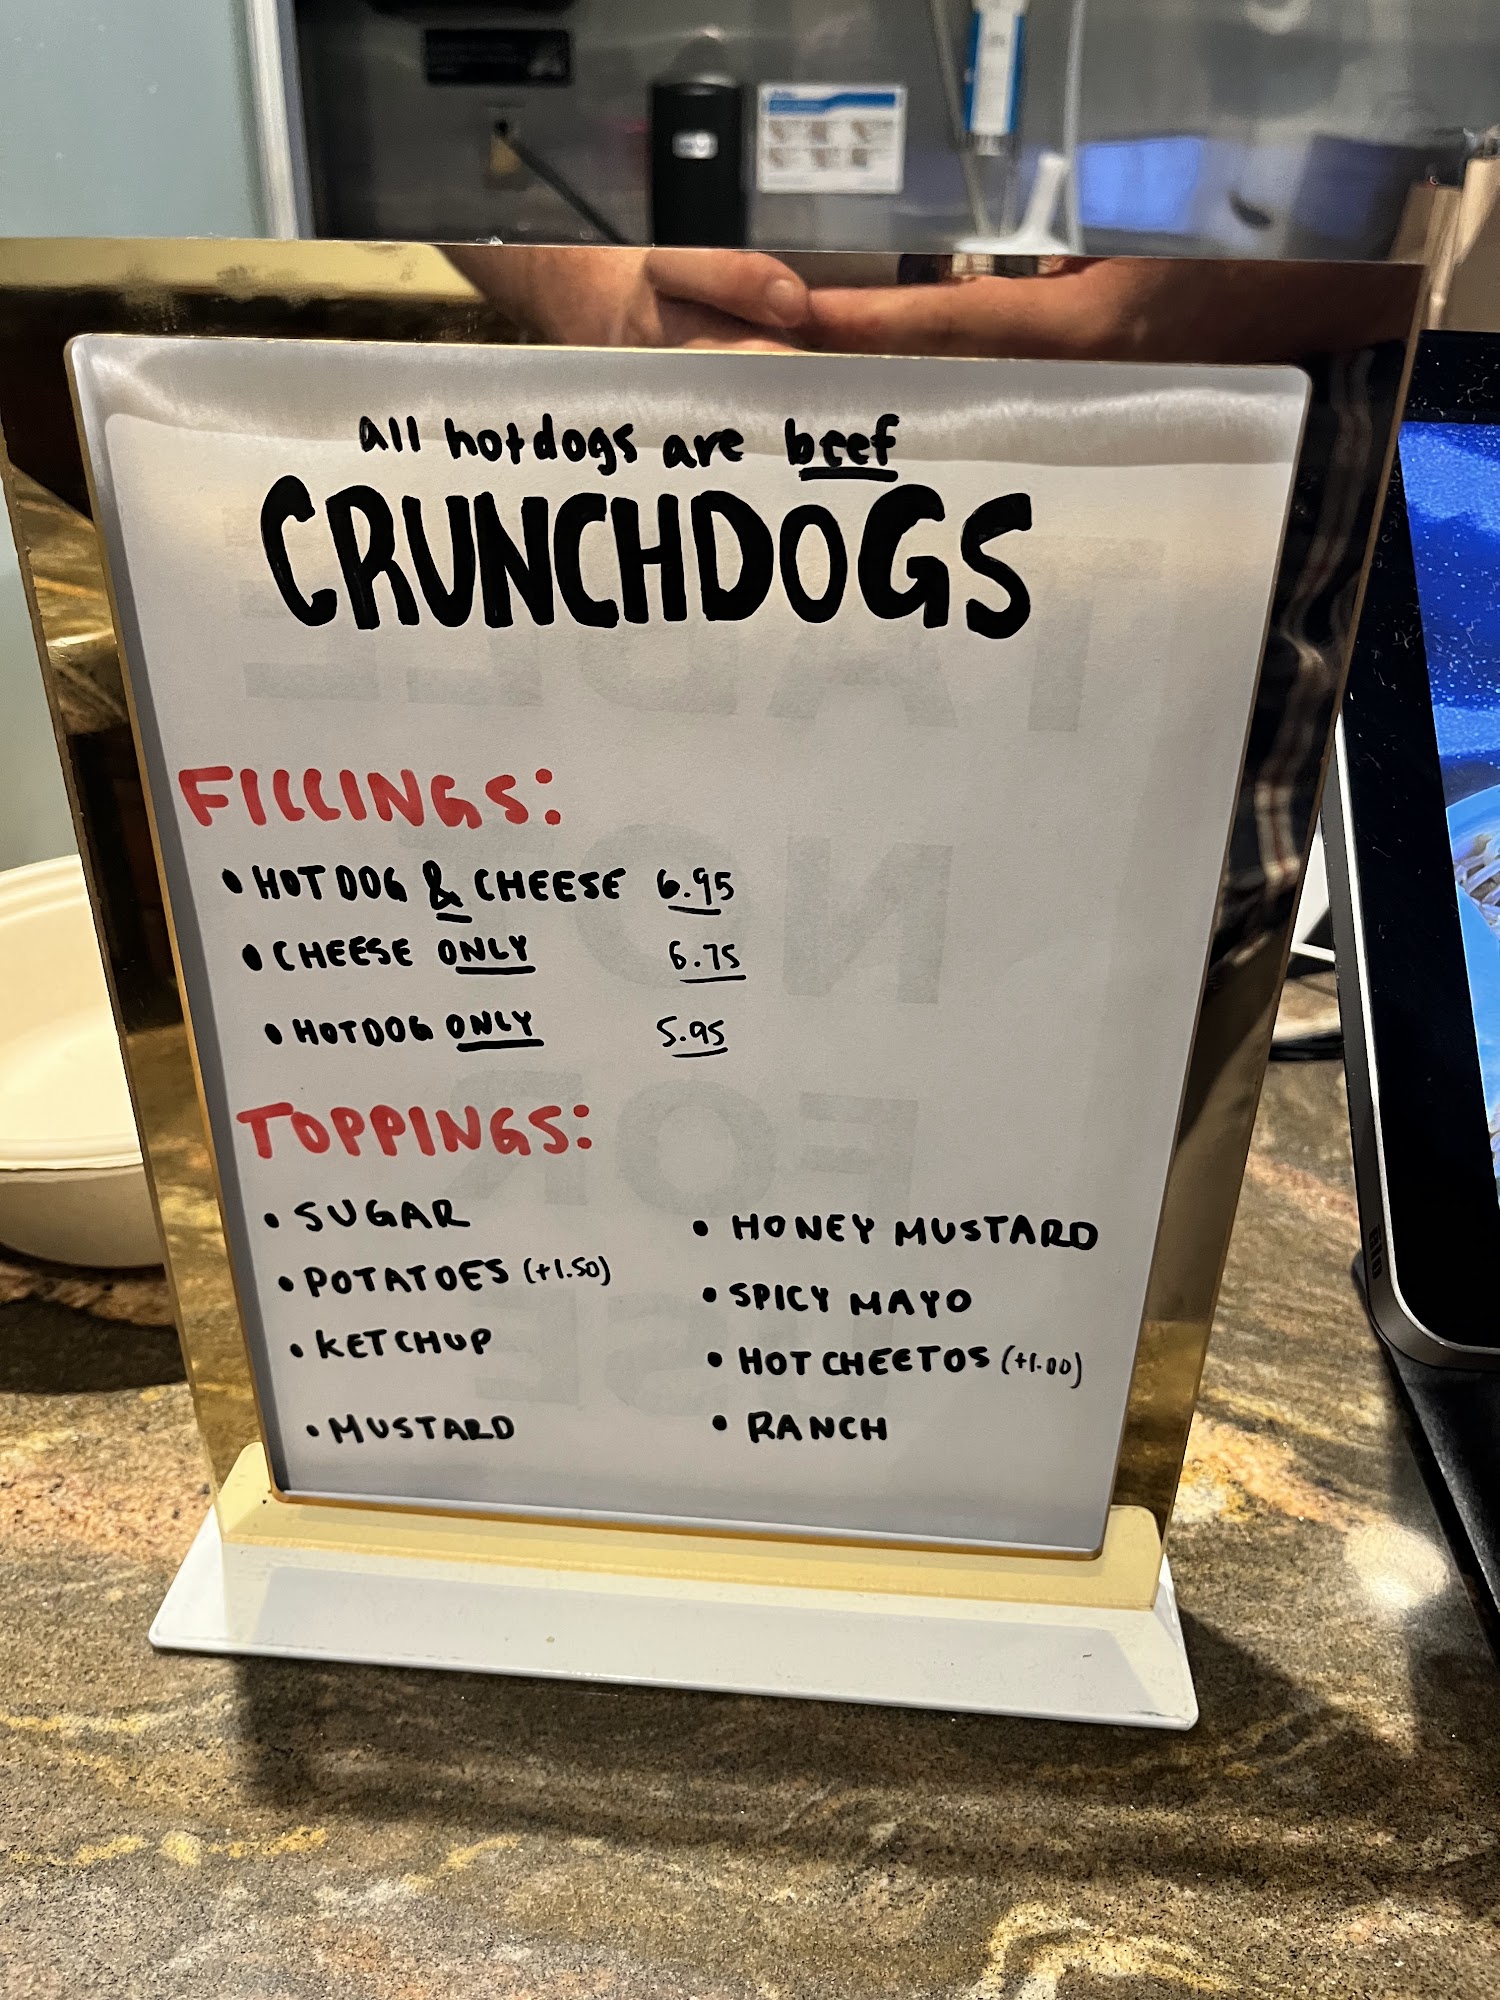 all hotdogs are beef
CRUNCHDOGS
FILLINGS:
• HOTDOG & CHEESE 6.95
• CHEESE ONLY 6.75
• HOTDOG ONLY 5.95
TOPPINGS:
• SUGAR
• POTATOES (+1.50)
• KETCHUP
• MUSTARD
• HONEY MUSTARD
• SPICY MAYO
• HOT CHEETOS (+1.00)
• RANCH
TABLE
NOT
FOR
USE